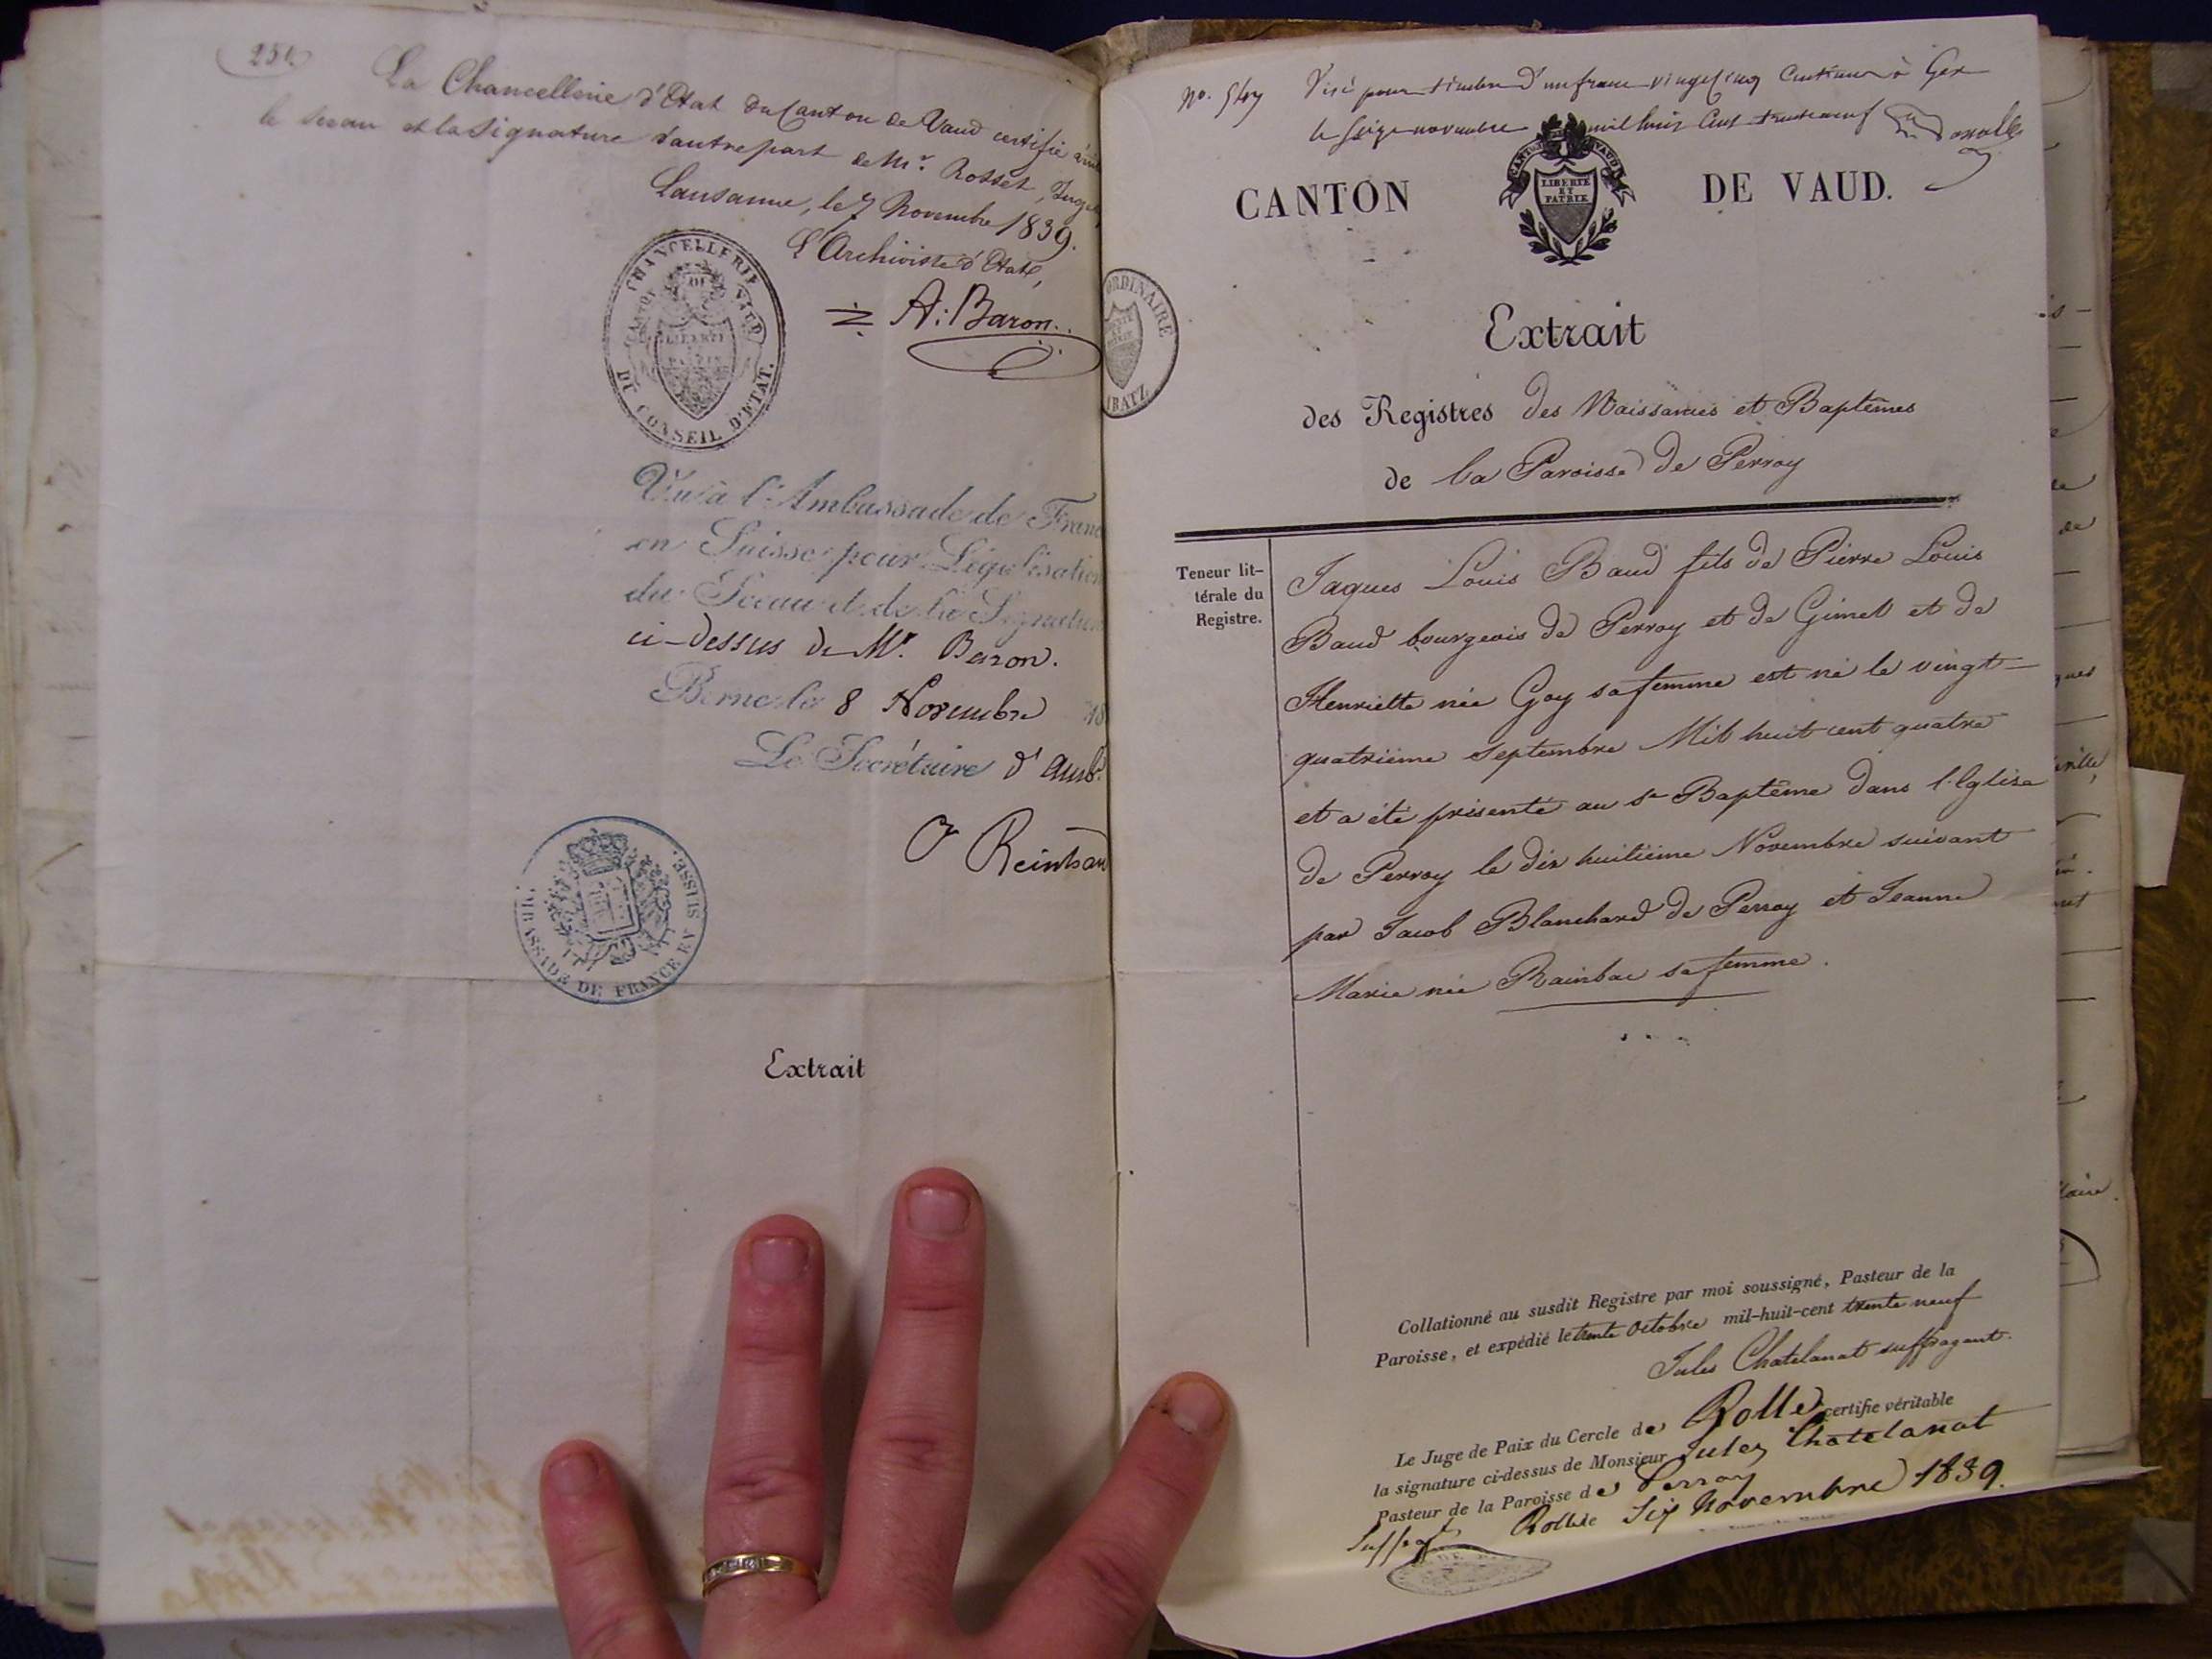 La Chancellerie d'Etat du Canton de Vaud certifie
le sceau et la signature d'autre part de Mr. Rosset, Juge
Lausanne, le 7 Novembre 1839.
L'Archiviste d'Etat,
A: Baron.
CHANCELLERIE
CANTON DE VAUD
LIBERTÉ ET PATRIE
DU CONSEIL D'ETAT.
Vu à l'Ambassade de Franc
en Suisse pour Légalisation
du Sceau et de la Signature
ci-dessus de Mr. Baron.
Berne le 8 Novembre 18
Le Secrétaire d'amb.
AMBASSADE DE FRANCE EN SUISSE.
Extrait
No. Visé pour timbre d'un franc vingt cinq centimes à Gex
le seize novembre mil huit cent trente neuf
CANTON DE VAUD.
CANTON VAUD
LIBERTÉ
ET
PATRIE
ORDINAIRE
1BATZ
Extrait
des Registres des Naissances et Baptêmes
de la Paroisse de Perroy
Teneur lit-
térale du
Registre.
Jaques Louis Baud fils de Pierre Louis
Baud bourgeois de Perroy et de Gimel et de
Henriette née Goy sa femme est né le vingt-
quatrième Septembre Mil huit cent quatre
et a été présenté au St Baptême dans l'Eglise
de Perroy le dix huitième Novembre suivant
par Jacob Blanchard de Perroy et Jeanne
Marie née Rainbac sa femme.
Collationné au susdit Registre par moi soussigné, Pasteur de la
Paroisse, et expédié le trente Octobre mil-huit-cent trente neuf
Jules Chatelanat suffragant.
Le Juge de Paix du Cercle de Rolle certifie véritable
la signature ci-dessus de Monsieur Jules Chatelanat
Pasteur de la Paroisse de Perroy
Suffrag Rolle Six Novembre 1839.